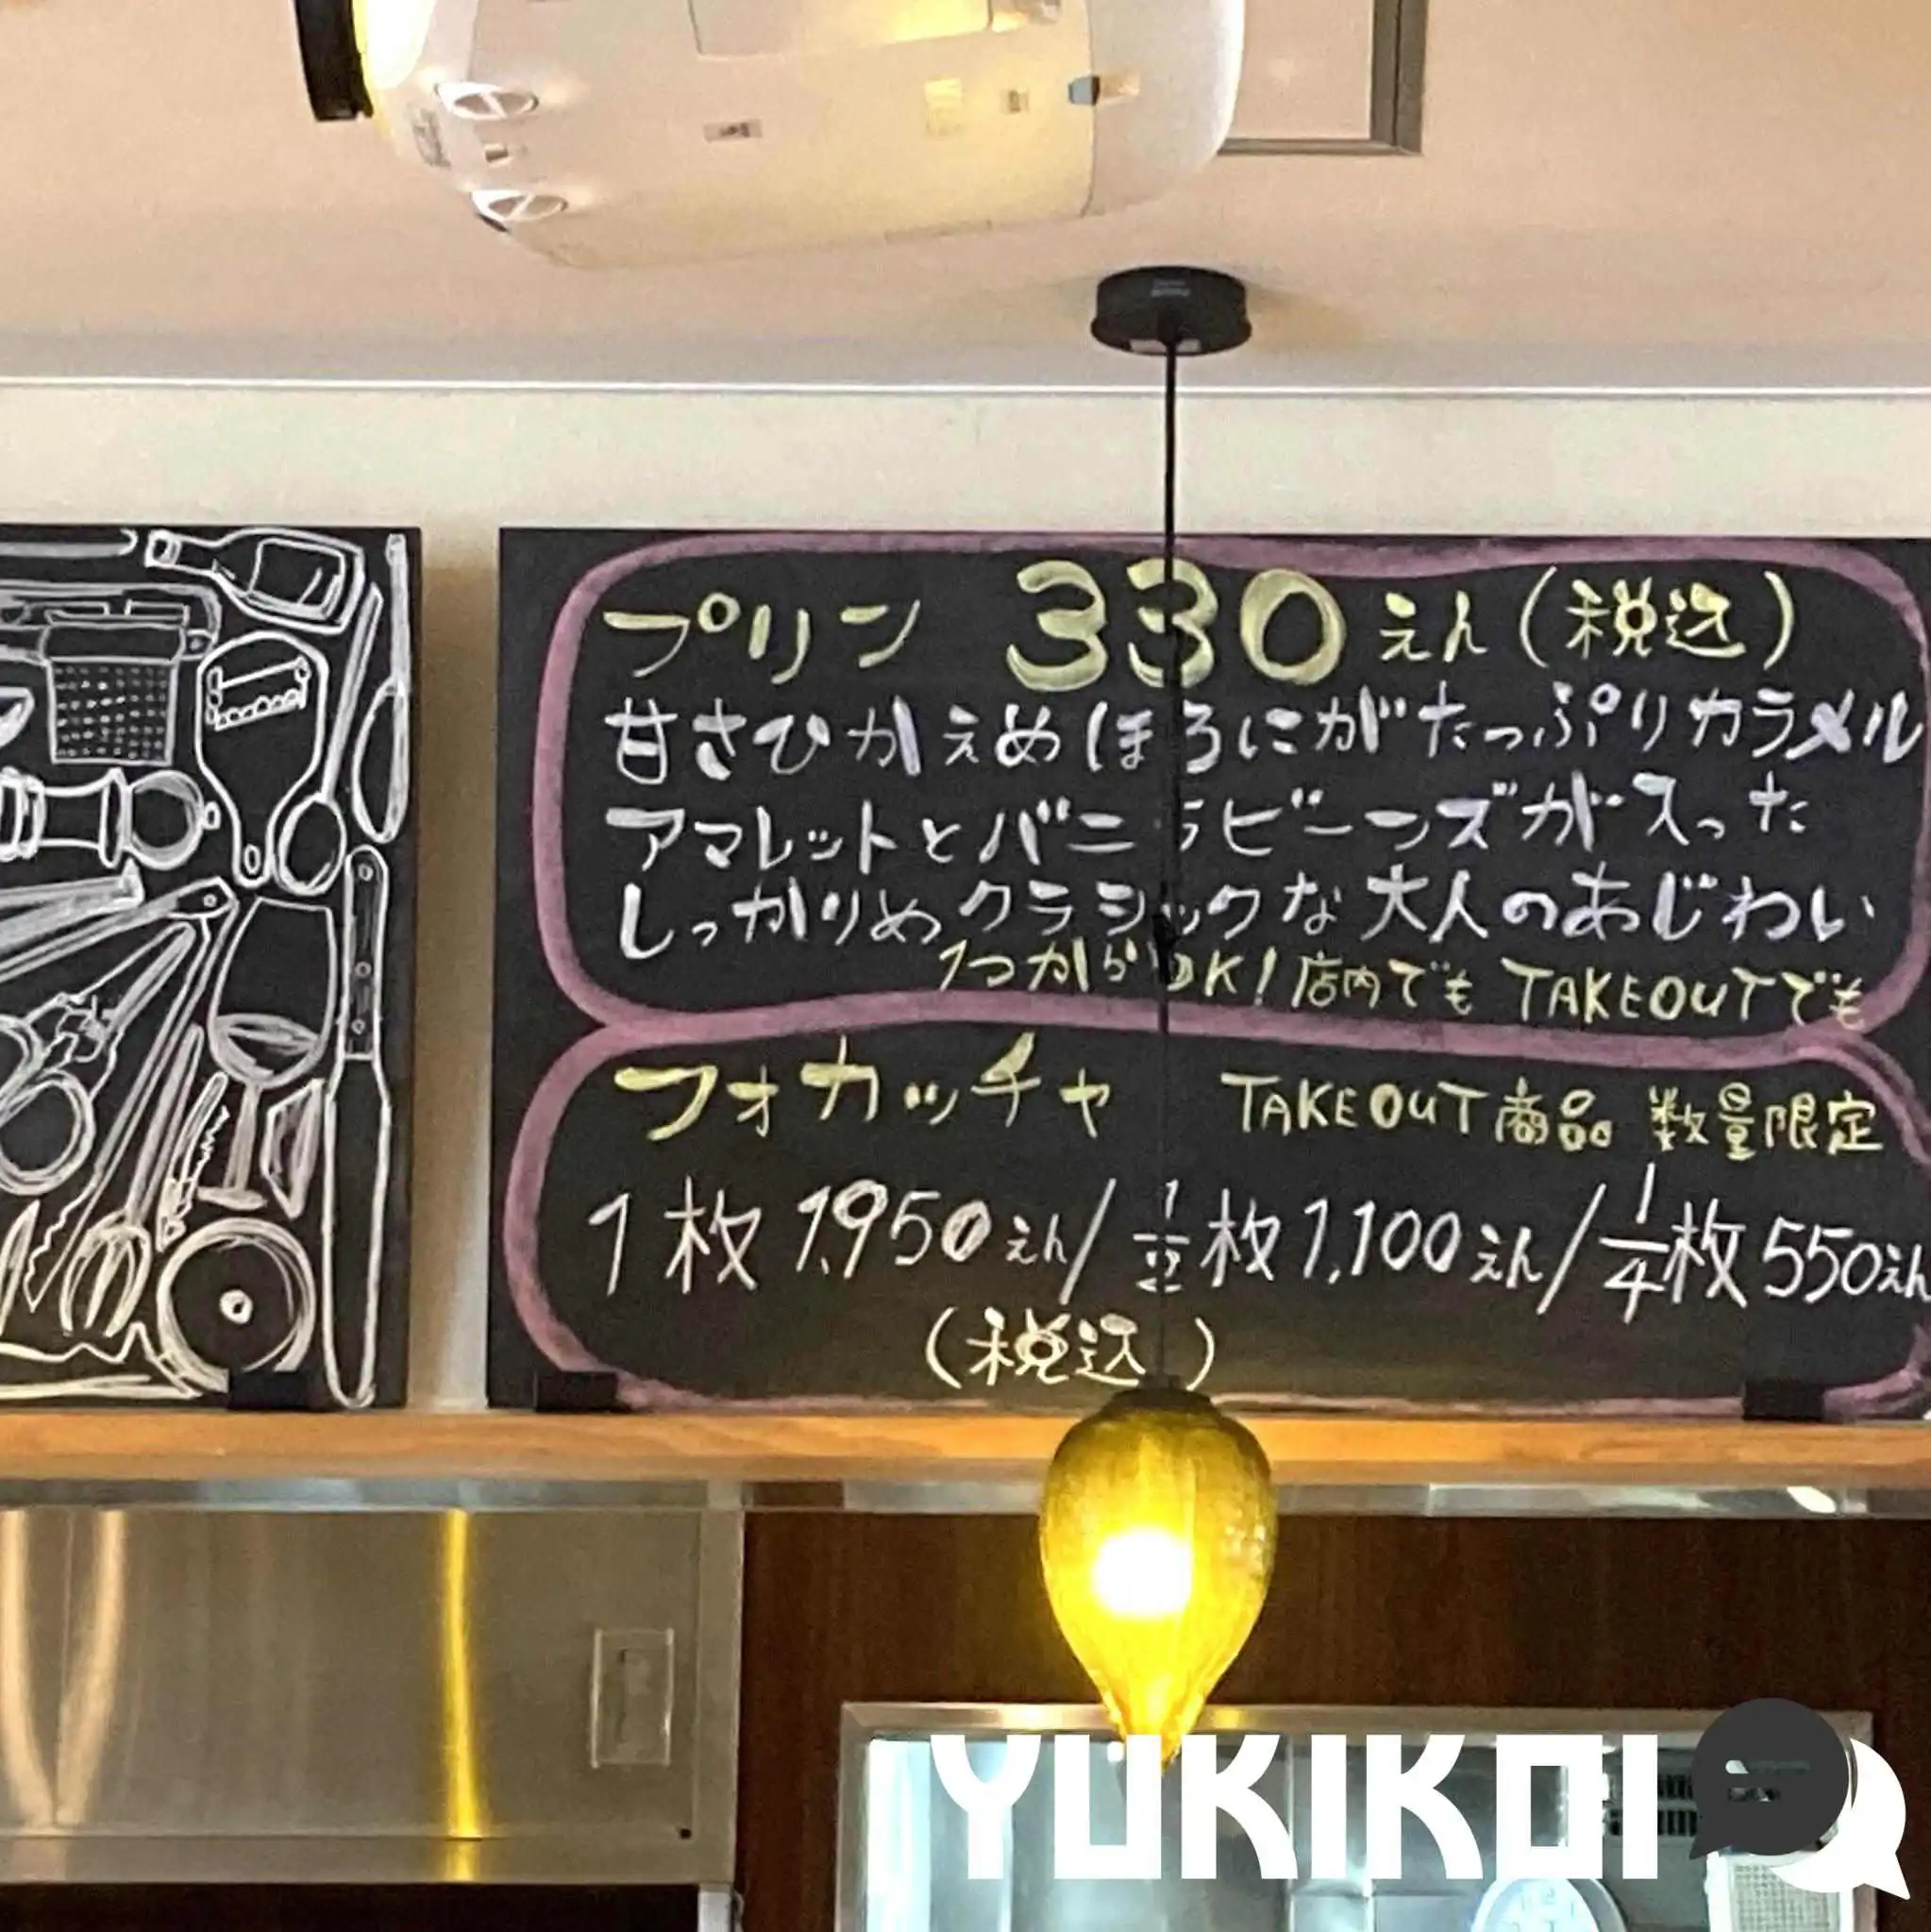 プリン 330えん(税込)
甘さひかえめほろにがたっぷりカラメル
アマレットとバニラビーンズが入った
しっかりめクラシックな大人のあじわい
1つからOK!店内でも TAKEOUTでも
フォカッチャ TAKEOUT商品 数量限定
1枚 1,950えん/1/2枚1,100えん/1/4枚550えん
(税込)
YUKIKOI